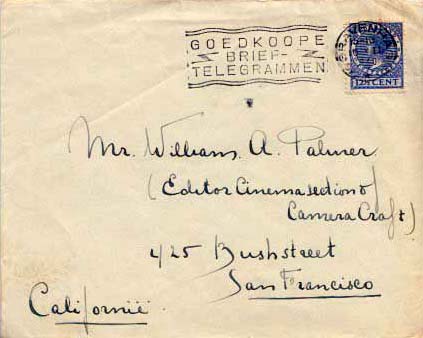 GOEDKOOPE
BRIEF-
TELEGRAMMEN
'S-GRAVENHAGE
12½ CENT
Mr. Williams. A. Palmer.
(Editor Cinemasection of
Camera Craft)
425 Bushstreet
San Francisco
Californië